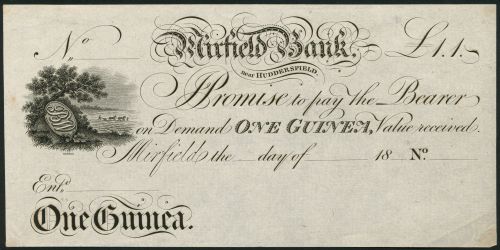 No
Mirfield Bank.
near HUDDERSFIELD.
£1.1.-
I Promise to pay the Bearer
on Demand ONE GUINEA, Value received.
Mirfield the day of 18 No.
Entd.
One Guinea.